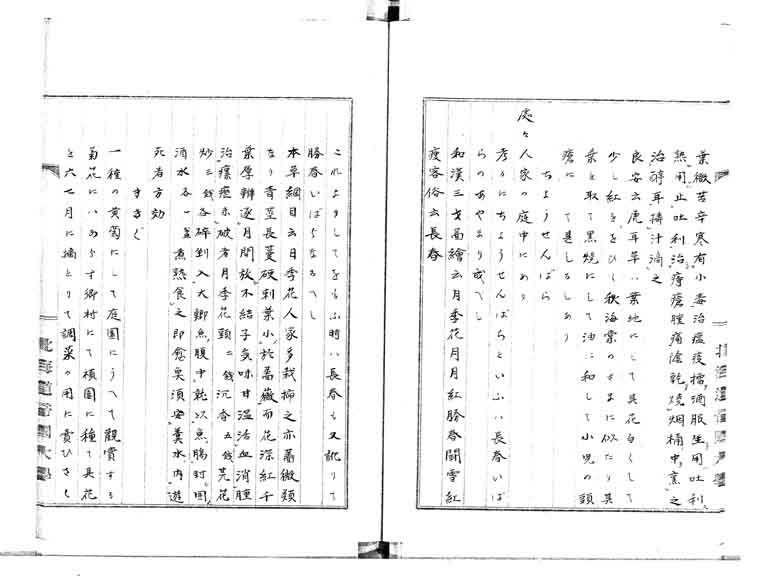 葉微苦辛寒有小毒治瘟疫擂酒服生用吐利
熱用止吐利治痔瘡腫痛陰乾燒烟桶中熏之
治聤耳擣汁滴之
良安云虎耳草ハ葉地にして其花白くして
少し紅ををひ秋海棠のさまに似たり其
葉を取て黒焼にして油ニ和して小児の頭
瘡に て甚しるしあり
ちようせんばら
處々人家の庭中にあり
考るにちようせんばらといふハ長春いば
らのあやまり成へし
和漢三才圖繪云月季花月月紅勝春鬪雪紅
痩客俗云長春
これよりしてをもふ時ハ長春も又訛りて
勝春いばらなるへし
本草綱目云日季花人家多栽揷之亦薔薇類
なり青莖長蔓硬刺葉小於薔薇而花深紅千
葉厚瓣逐月開放不結子気味甘温活血消腫
治瘰癧未破者月季花頭二銭沉香五銭芫花
炒三銭各碎剉入大鯽魚腹中就以魚腸封固
酒水各一盞煮熟食之即愈魚須安糞水内遊
死者方効
きぎく
一種の黄菊にして庭園にうへて觀賞する
菊花にハあらす郷村にて槙園に種て其花
を六七月に摘とりて調菜の用に賞ひさし
北海道帝國大學